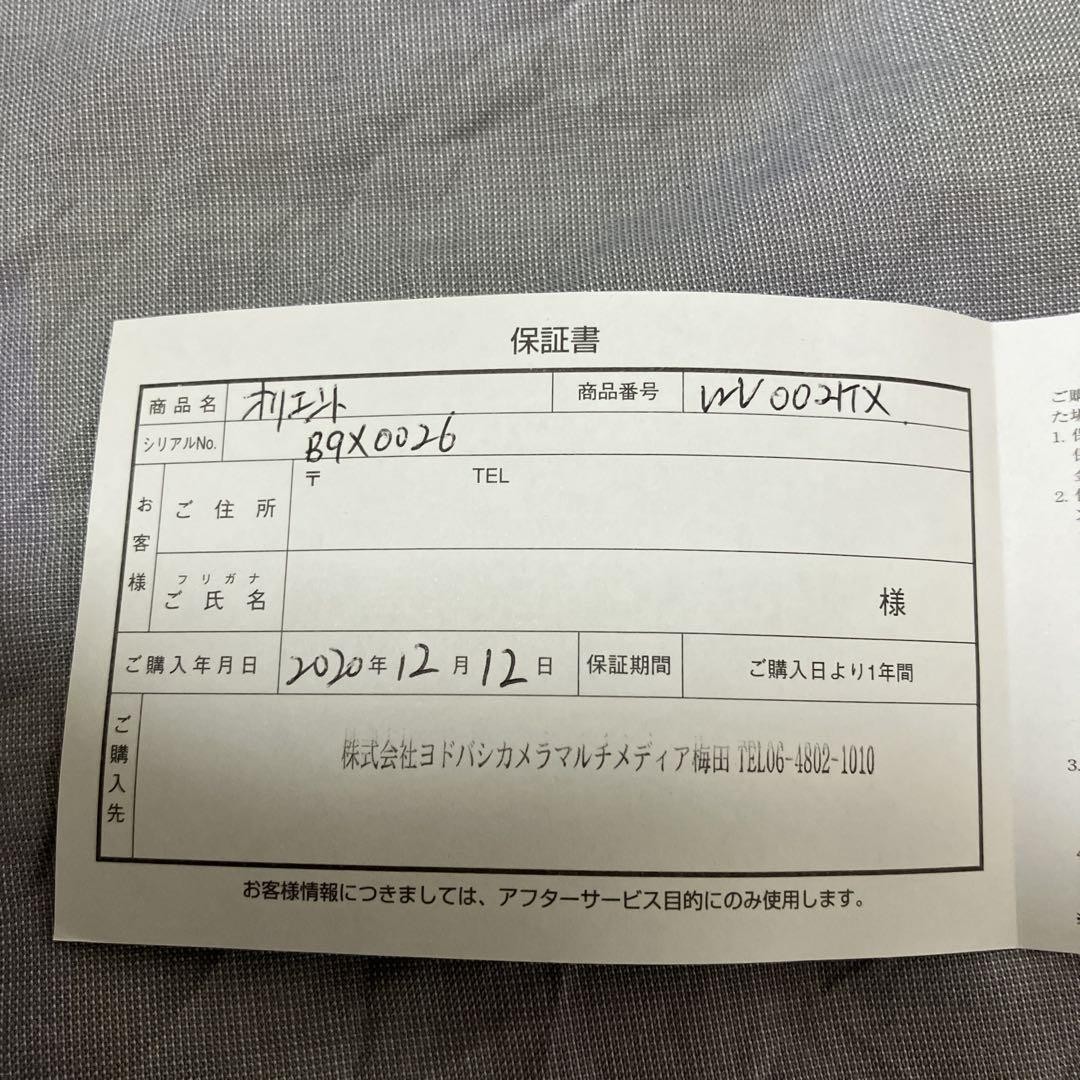 保証書
商品名 オリエント 商品番号
シリアルNo. B9X0026
お客様
ご住所 〒 TEL
フリガナ
ご氏名 様
ご購入年月日 2020年12月12日 保証期間 ご購入日より1年間
ご購入先 株式会社ヨドバシカメラマルチメディア梅田 TEL06-4802-1010
お客様情報につきましては、アフターサービス目的にのみ使用します。
ご購
1.
2.
3.